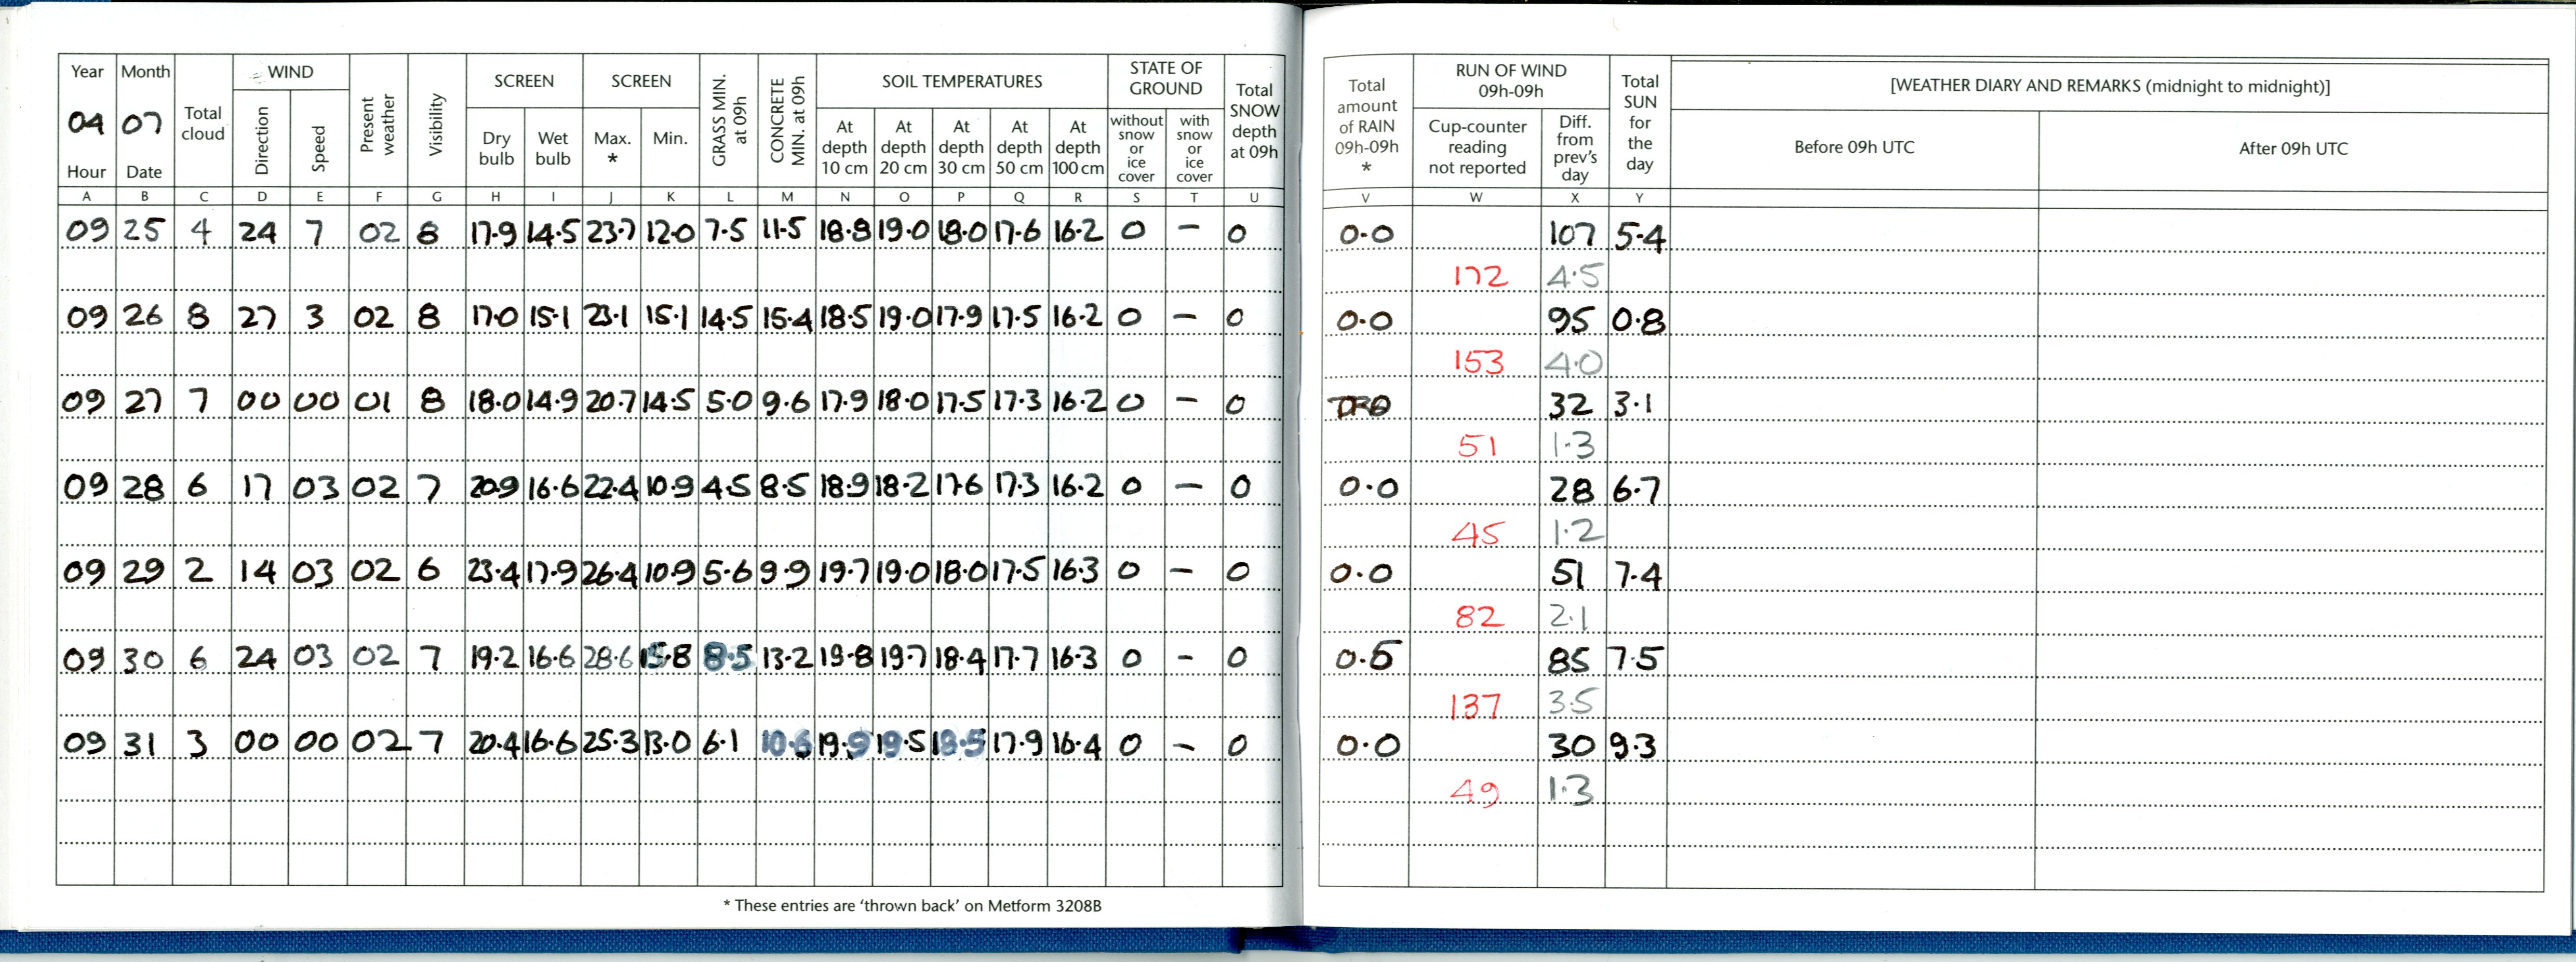 Year Month WIND SCREEN SCREEN SOIL TEMPERATURES STATE OF GROUND
04 07 Total cloud Direction Speed Present weather Visibility Dry bulb Wet bulb Max. * Min. GRASS MIN. at 09h CONCRETE MIN. at 09h At depth 10 cm At depth 20 cm At depth 30 cm At depth 50 cm At depth 100 cm without snow or ice cover with snow or ice cover Total SNOW depth at 09h
Hour Date
A B C D E F G H I J K L M N O P Q R S T U
09 25 4 24 7 02 8 17.9 14.5 23.7 12.0 7.5 11.5 18.8 19.0 18.0 17.6 16.2 0 – 0
09 26 8 27 3 02 8 17.0 15.1 23.1 15.1 14.5 15.4 18.5 19.0 17.9 17.5 16.2 0 – 0
09 27 7 00 00 01 8 18.0 14.9 20.7 14.5 5.0 9.6 17.9 18.0 17.5 17.3 16.2 0 – 0
09 28 6 17 03 02 7 20.9 16.6 22.4 10.9 4.5 8.5 18.9 18.2 17.6 17.3 16.2 0 – 0
09 29 2 14 03 02 6 23.4 17.9 26.4 10.9 5.6 9.9 19.7 19.0 18.0 17.5 16.3 0 – 0
09 30 6 24 03 02 7 19.2 16.6 28.6 15.8 8.5 13.2 19.8 19.7 18.4 17.7 16.3 0 – 0
09 31 3 00 00 02 7 20.4 16.6 25.3 13.0 6.1 10.6 19.9 19.5 18.5 17.9 16.4 0 – 0
* These entries are 'thrown back' on Metform 3208B
Total amount of RAIN 09h-09h * RUN OF WIND 09h-09h Total SUN for the day [WEATHER DIARY AND REMARKS (midnight to midnight)]
Cup-counter reading not reported Diff. from prev's day Before 09h UTC After 09h UTC
V W X Y
0.0 107 5.4
172 4.5
0.0 95 0.8
153 4.0
32 3.1
51 1.3
0.0 28 6.7
45 1.2
0.0 51 7.4
82 2.1
0.5 85 7.5
137 3.5
0.0 30 9.3
49 1.3